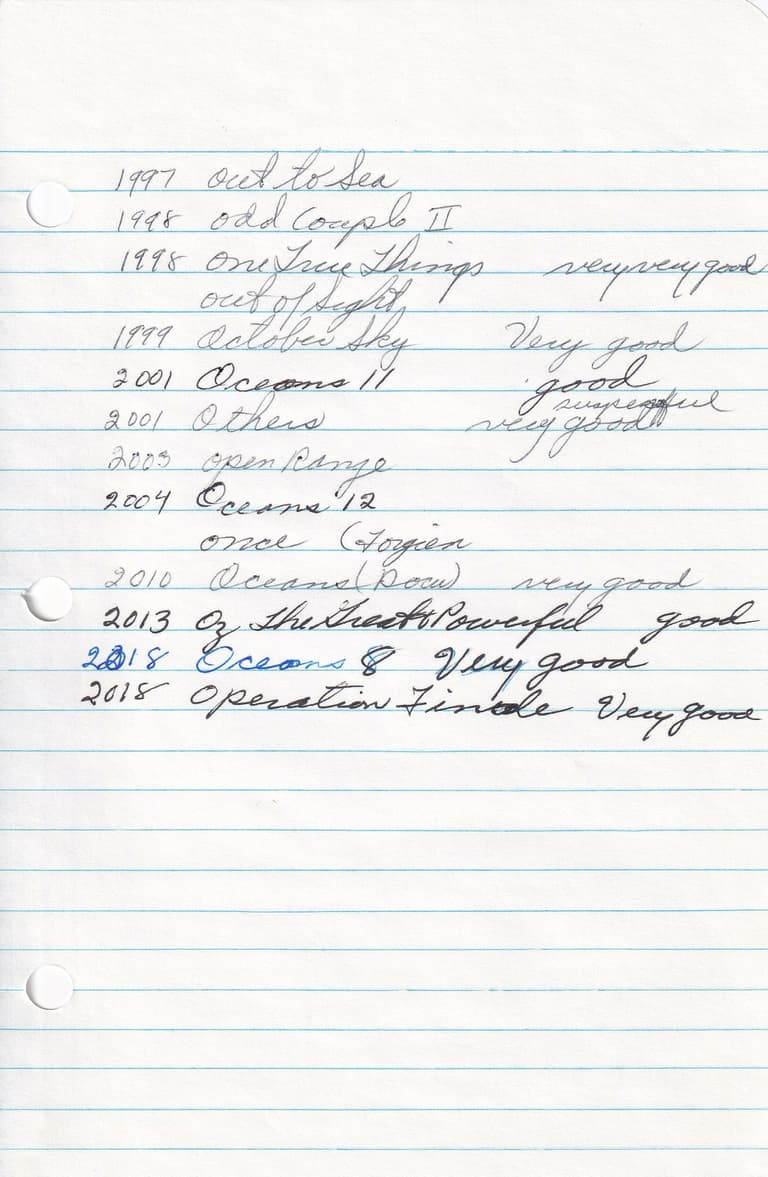 1997 Out to Sea
1998 odd Couple II
1998 One True Things very very good
out of Sight
1999 October Sky Very good
2001 Oceans 11 good
suspensful
2001 Others very good
2003 open Range
2004 Oceans 12
once (Forgien
2010 Oceans very good
2013 Oz The Great & Powerful good
2018 Oceans 8 Very good
2018 Operation Finale Very good